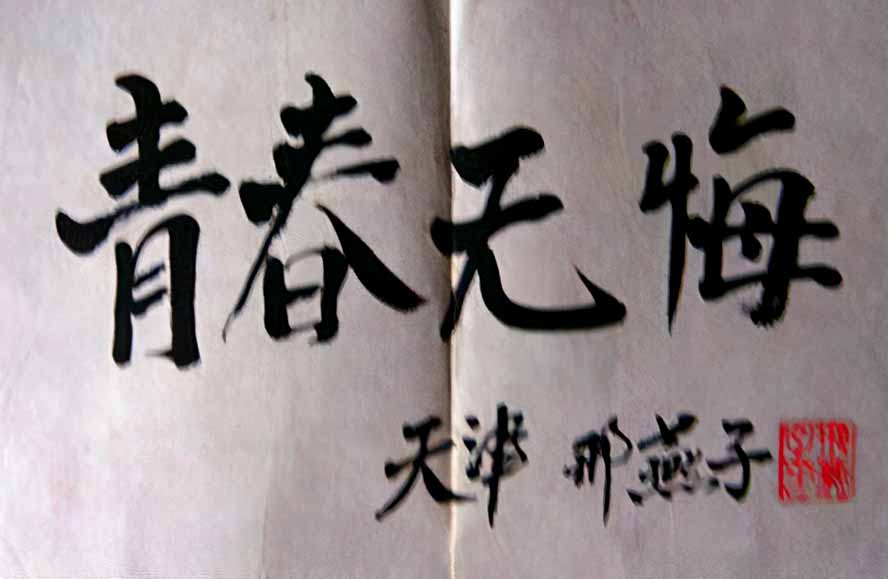 青春无悔
天津 那燕子